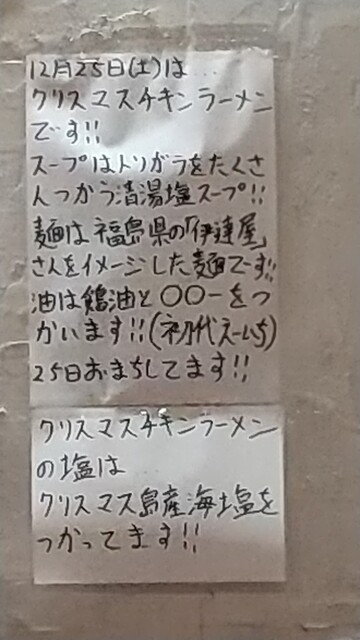 12月25日(土)は…
クリスマスチキンラーメン
です!!
スープはトリガラをたくさ
んつかう清湯塩スープ!!
麺は福島県の「伊達屋」
さんをイメージした麺です!!
油は鶏油と〇〇ーをつ
かいます!!(初代
25日おまちしてます!!
クリスマスチキンラーメン
の塩は
クリスマス島産海塩を
つかってます!!